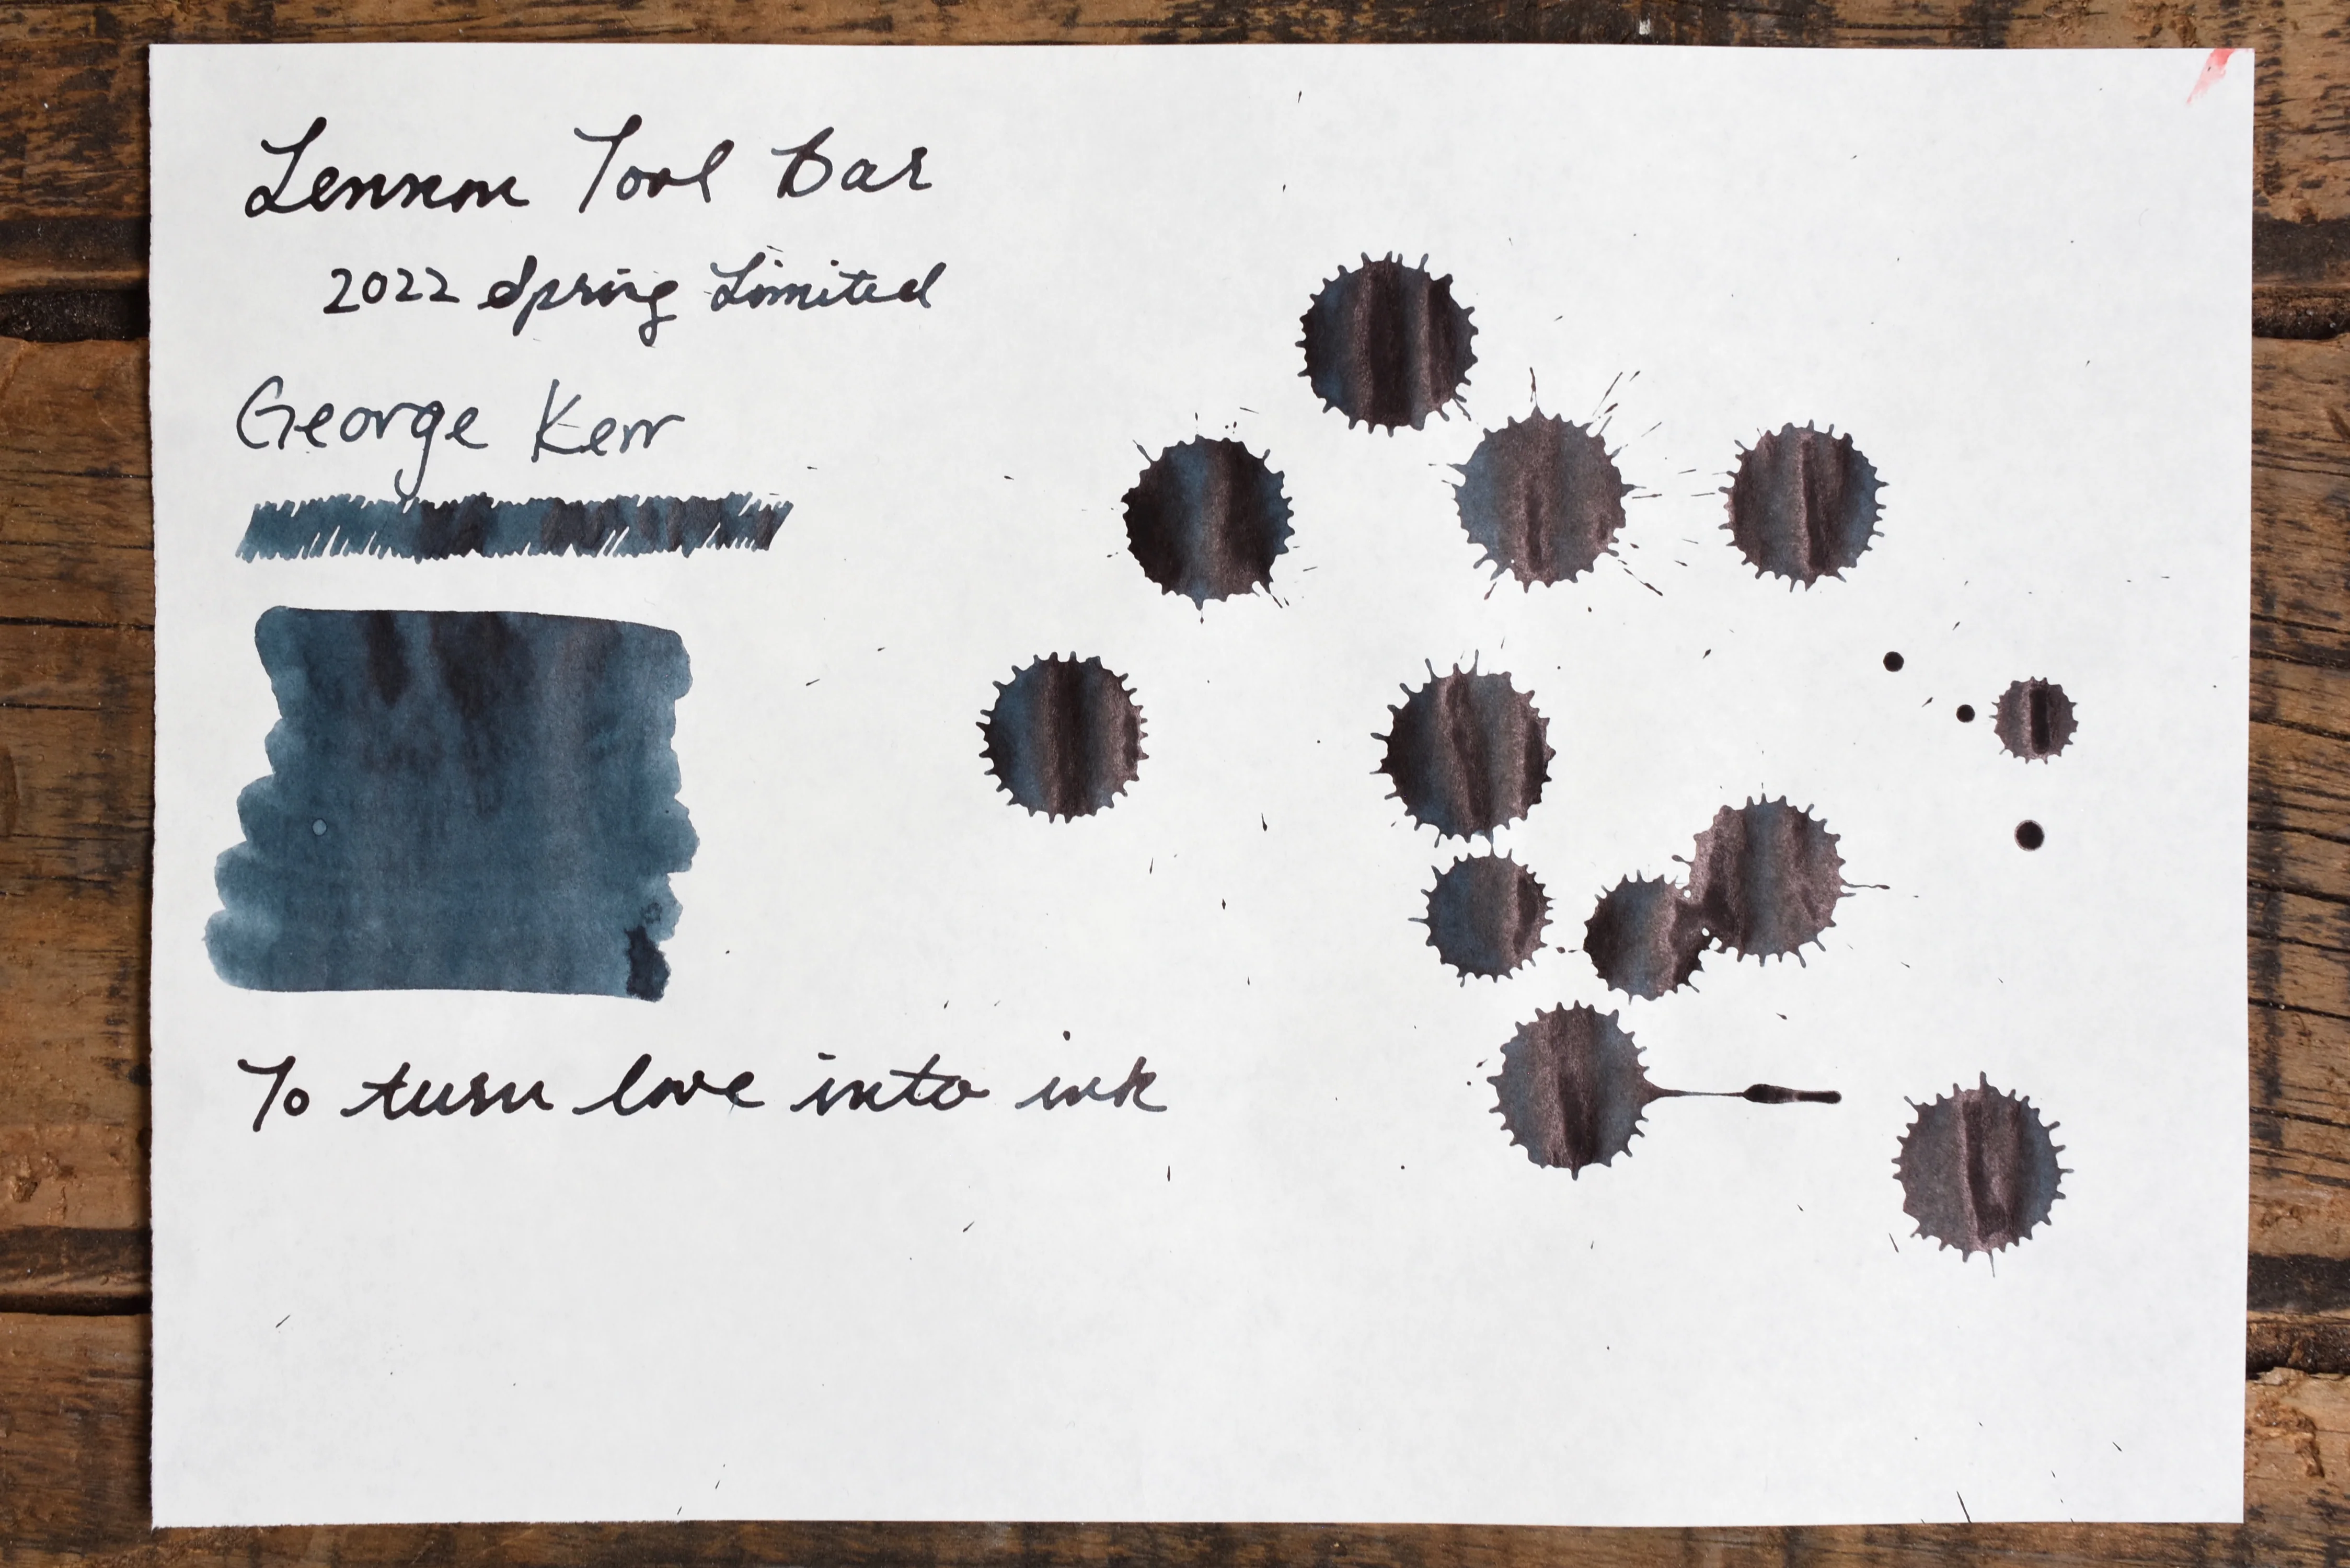 Lennon Tool Bar
2022 Spring Limited
George Kerr
To turn love into ink